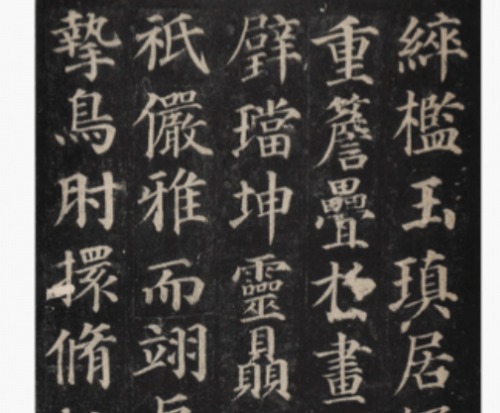 綷檻玉瑱居
重簷疊扵畫
璧璫坤靈贔
祇儼雅而翊
摯鳥肘擐脩